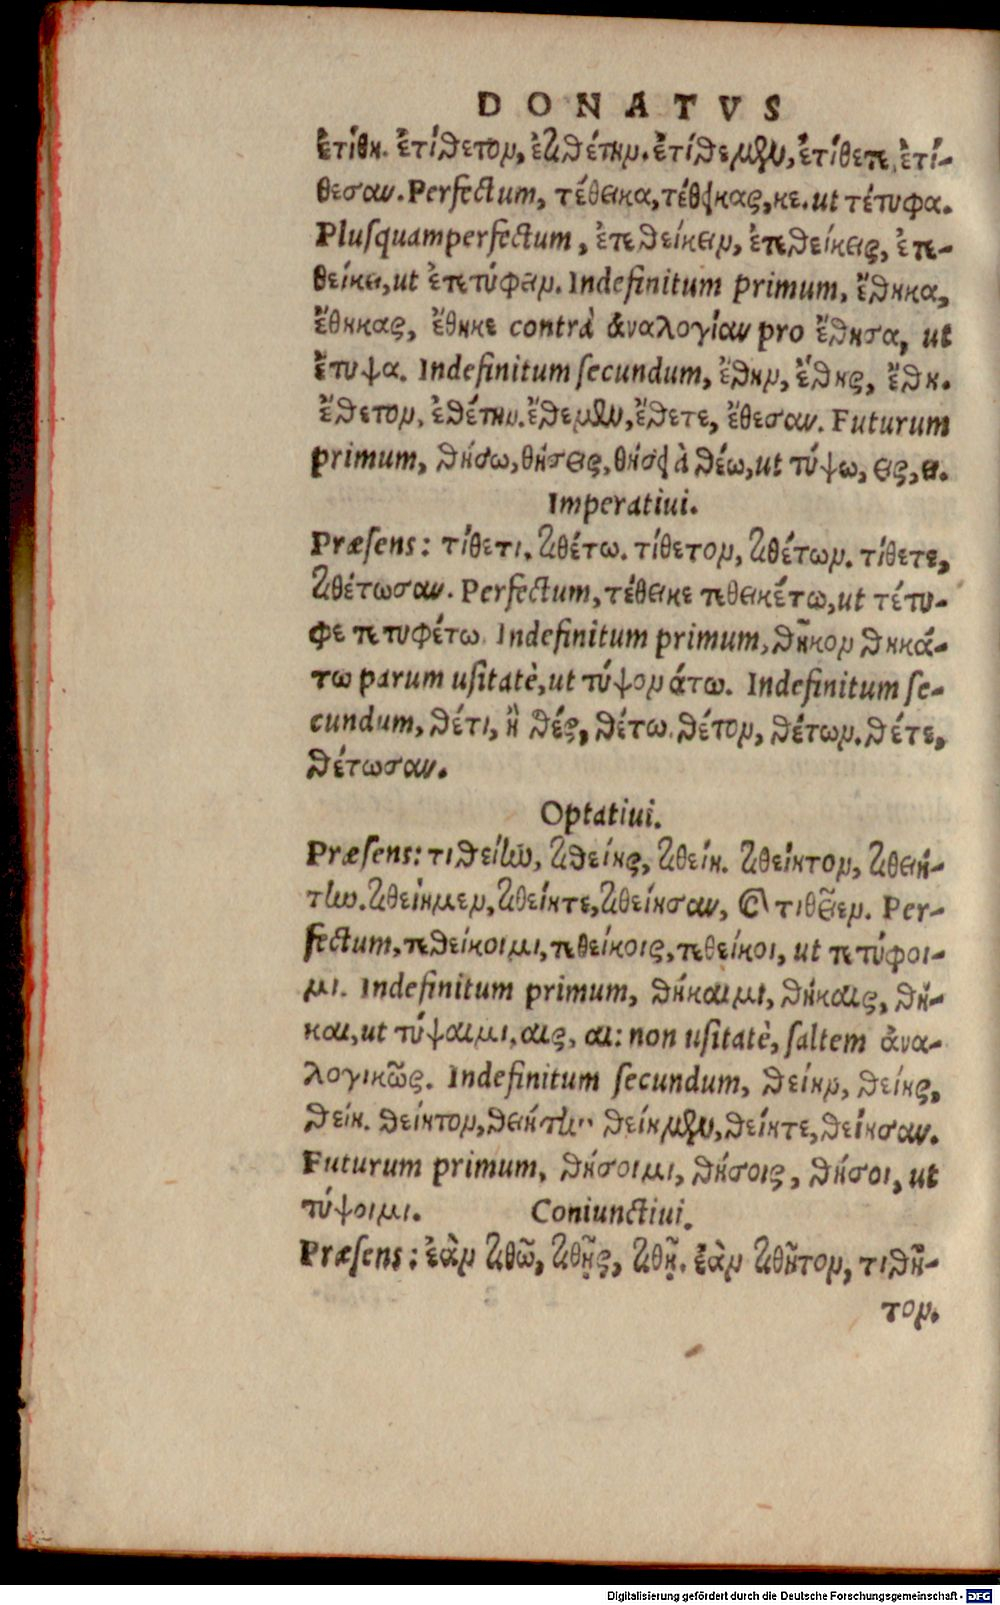 DONATVS
ἐτίθη. ἐτίθετον, ἐτιθέτην. ἐτίθεμεν, ἐτίθετε, ἐτί-
θεσαν. Perfectum, τέθεικα, τέθεικας, κε. ut τέτυφα.
Plusquamperfectum, ἐτεθείκειν, ἐτεθείκεις, ἐτε-
θείκει, ut ἐτετύφειν. Indefinitum primum, ἔθηκα,
ἔθηκας, ἔθηκε contrà ἀναλογίαν pro ἔθησα, ut
ἔτυψα. Indefinitum secundum, ἔθην, ἔθης, ἔθη.
ἔθετον, ἐθέτην. ἔθεμεν, ἔθετε, ἔθεσαν. Futurum
primum, θήσω, θήσεις, θήσει à θέω, ut τύψω, εις, ει.
Imperatiui.
Præsens: τίθετι, τιθέτω. τίθετον, τιθέτων. τίθετε,
τιθέτωσαν. Perfectum, τέθεικε τεθεικέτω, ut τέτυ-
φε τετυφέτω. Indefinitum primum, θῆκον θηκά-
τω parum usitatè, ut τύψον άτω. Indefinitum se-
cundum, θέτι, ἢ θές, θέτω. θέτον, θέτων. θέτε,
θέτωσαν.
Optatiui.
Præsens: τιθείην, τιθείης, τιθείη. τιθείητον, τιθειή-
την. τιθείημεν, τιθείητε, τιθείησαν, & τιθεῖεν. Per-
fectum, τεθείκοιμι, τεθείκοις, τεθείκοι, ut τετύφοι-
μι. Indefinitum primum, θήκαιμι, θήκαις, θή-
και, ut τύψαιμι, αις, αι: non usitatè, saltem ἀνα-
λογικῶς. Indefinitum secundum, θείην, θείης,
θείη. θείητον, θειήτην θείημεν, θείητε, θείησαν.
Futurum primum, θήσοιμι, θήσοις, θήσοι, ut
τύψοιμι. Coniunctiui.
Præsens: ἐὰν τιθῶ, τιθῇς, τιθῇ. ἐὰν τιθῆτον, τιθῆ-
τον.
Digitalisierung gefördert durch die Deutsche Forschungsgemeinschaft - DFG